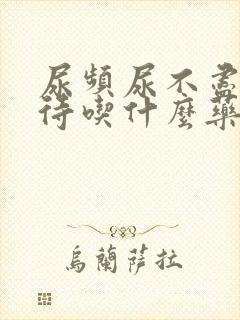 尿頻尿不盡
待喫什麼藥
烏蘭薩拉